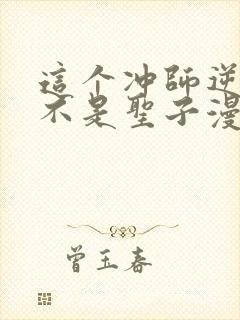 這个冲師逆
不是聖子漫
曾玉春